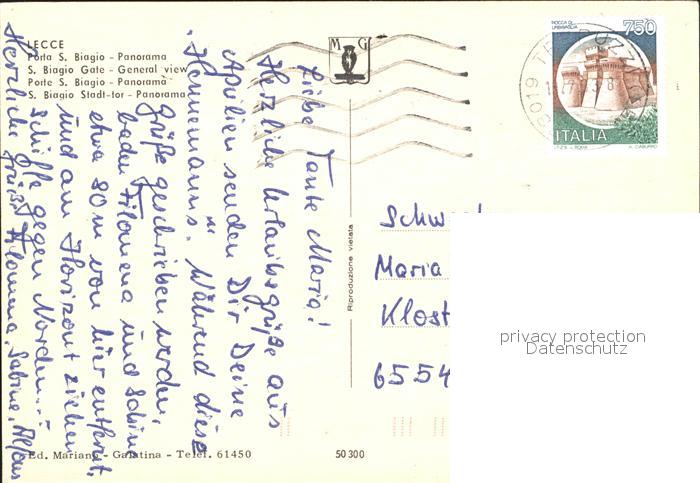 LECCE
Porta S. Biagio - Panorama
S. Biagio Gate - General view
Porte S. Biagio - Panorama
S. Biagio Stadt-tor - Panorama
M G
ROCCA DI
URBISAGLIA
750
ITALIA
Liebe Tante Maria!
Herzliche Urlaubsgrüße aus
Apulien senden Dir Deine
"Hennemanns". Während diese
Grüße geschrieben werden,
baden Filomena und Sabine
etwa 80 m von hier entfernt,
und am Horizont ziehen
Schiffe gegen Norden...
Herzliche Grüße, Filomena, Sabine, Alfons
Riproduzione vietata
Schw
Maria
Klost
6554
privacy protection
Datenschutz
Ed. Mariano - Galatina - Telef. 61450
50300